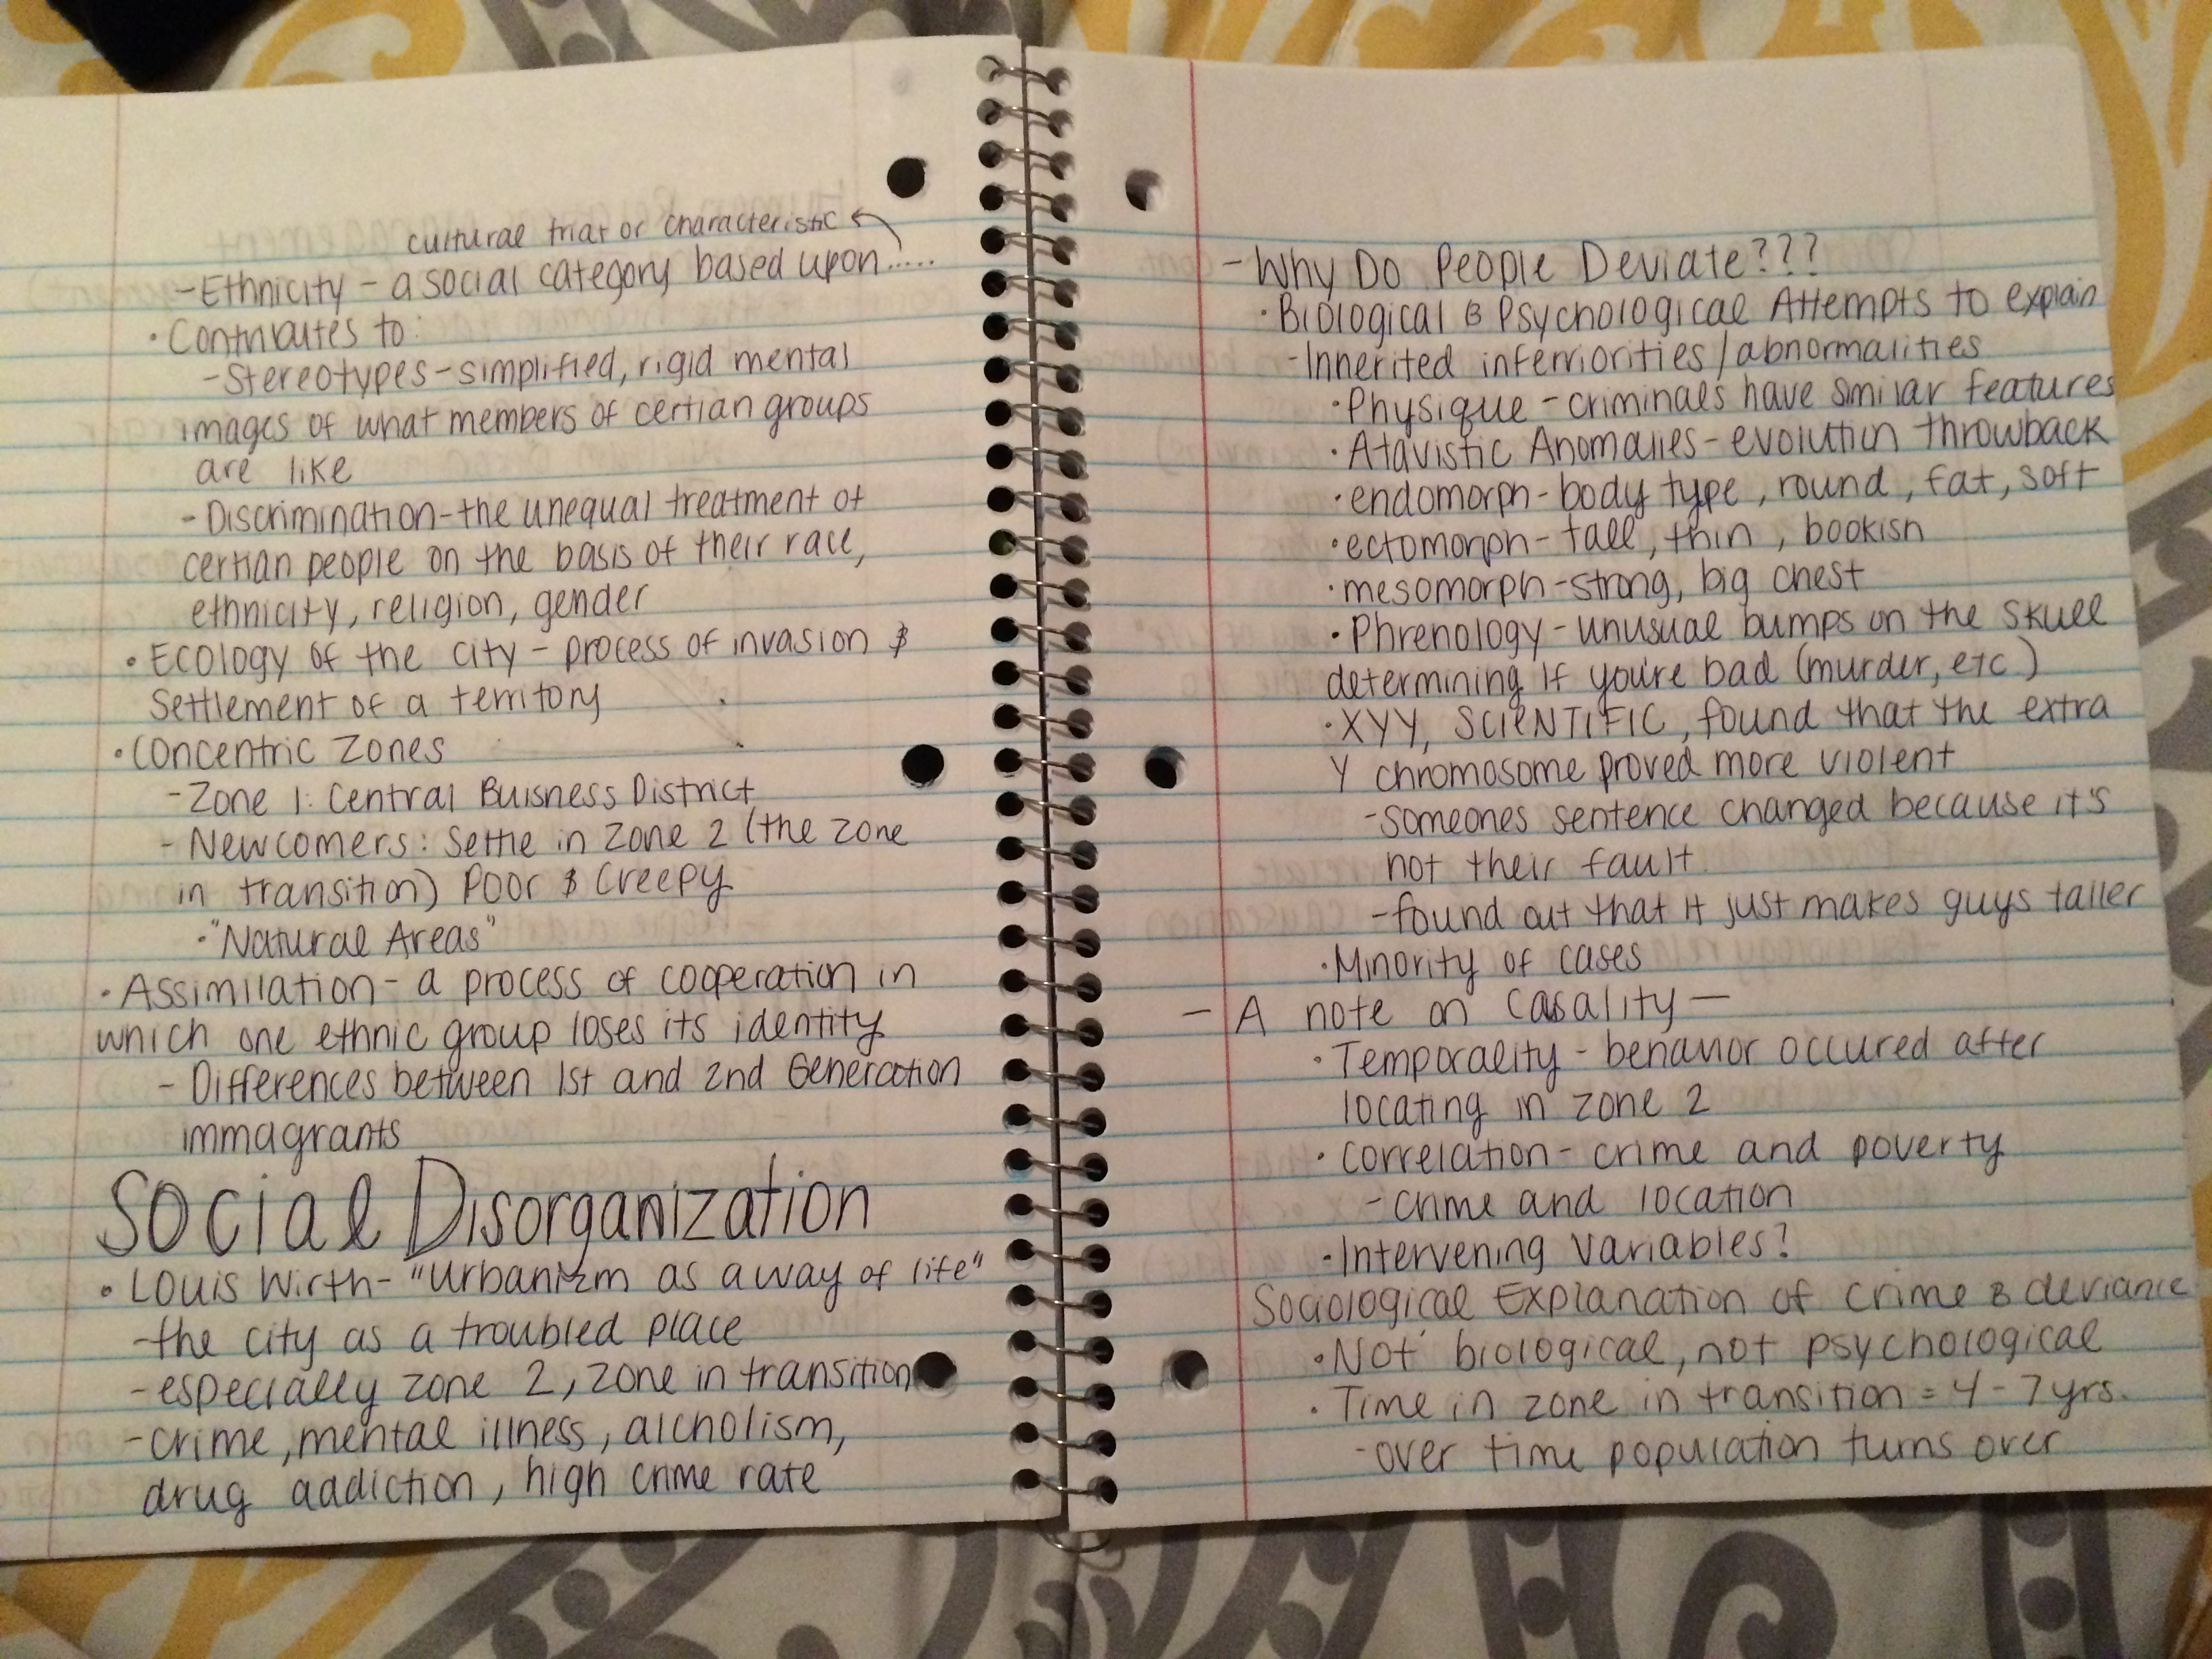 cultural triat or characteristic
- Ethnicity - a social category based upon.....
• Contributes to:
- Stereotypes - simplified, rigid mental
images of what members of certian groups
are like
- Discrimination - the unequal treatment of
certian people on the basis of their race,
ethnicity, religion, gender
• Ecology of the city - process of invasion &
Settlement of a territory
• Concentric Zones
- Zone 1: Central Buisness District
- Newcomers: Settle in Zone 2 (the zone
in transition) Poor & Creepy
• "Natural Areas"
• Assimilation - a process of cooperation in
which one ethnic group loses its identity
- Differences between 1st and 2nd Generation
immagrants
Social Disorganization
• Louis Wirth - "Urbanizm as a way of life"
- the city as a troubled place
- especially zone 2, zone in transition
- crime, mental illness, alcholism,
drug addiction, high crime rate
- Why Do People Deviate???
• Biological & Psychological Attempts to explain
- Inherited inferriorities/abnormalities
• Physique - criminals have similar features
• Atavistic Anomalies - evolution throwback
• endomorph - body type, round, fat, soft
• ectomorph - tall, thin, bookish
• mesomorph - strong, big chest
• Phrenology - unusual bumps on the skull
determining if you're bad (murder, etc)
• XYY, SCIENTIFIC, found that the extra
Y chromosome proved more violent
- someones sentence changed because it's
not their fault
- found out that it just makes guys taller
• Minority of cases
- A note on Casality -
• Temporality - behavior occured after
locating in zone 2
• Correlation - crime and poverty
- crime and location
• Intervening Variables?
Sociological Explanation of Crime & deviance
• Not biological, not psychological
• Time in zone in transition = 4 - 7 yrs.
- over time population turns over